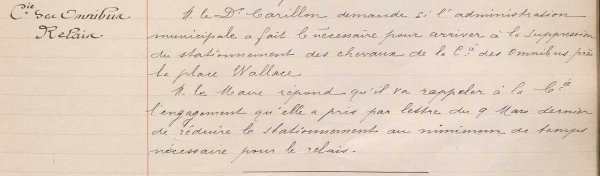 Cie des Omnibus
Relais
M. le Dr Carillon demande si l'administration
municipale a fait le nécessaire pour arriver à la suppression
du stationnement des chevaux de la Cie des Omnibus près
la place Wallace
M. le Maire répond qu'il va rappeler à la Cie
l'engagement qu'elle a pris par lettre du 9 Mars dernier
de réduire le stationnement au minimum de temps
nécessaire pour le relais.